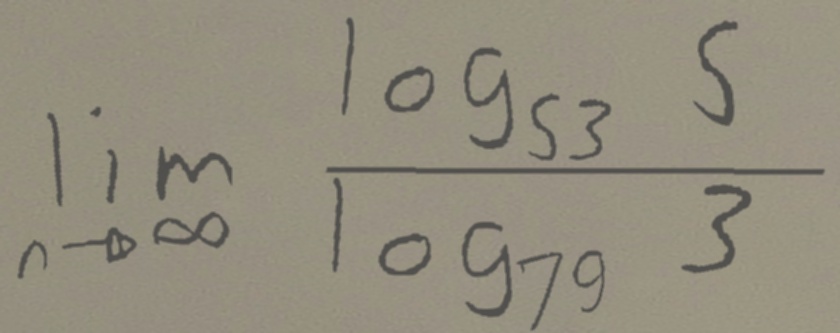 \lim_{n \to \infty} \frac{\log_{53} 5}{\log_{79} 3}